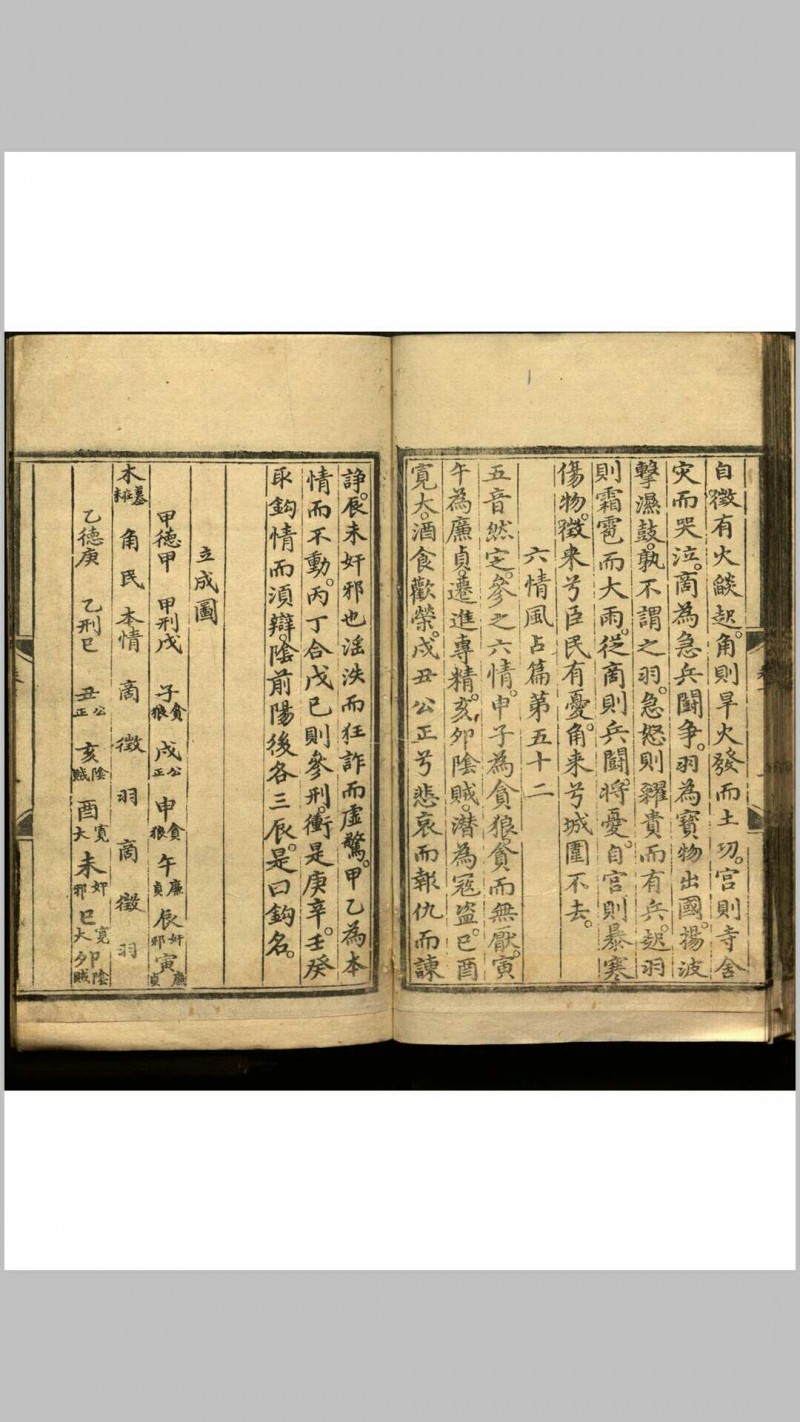 自徵有火燄起。角則旱火發而土功。宮則寺舍
灾而哭泣。啇為急兵闘争。羽為寳物出國。揚波
擊濕鼓。孰不謂之羽。急怒則糴貴而有兵。起羽
則霜雹而大雨。從商則兵闘將憂。自宮則暴寒
傷物。徵来兮臣民有憂。角来兮城圍不去。
六情風占篇第五十二
五音然定。參之六情。申子為貪狼。貪而無厭。寅
午為廉貞。遷進專精。亥卯陰賊。潜為冦盗。巳酉
寛大。酒食歡榮。戌丑公正兮悲哀而報仇而諫
諍。辰未奸邪也滛泆而狂詐而虚驚。甲乙為本
情而不動。丙丁合戊巳則參刑。衝是庚辛。壬癸
取鈎情而湏辯。陰前陽後各三辰。是曰鈎名。
立成圖
甲德甲 甲刑戊 子貪狼 戍公正 申貪狼 午廉貞 辰奸邪 寅廉貞
木 角民本情 商 徵 羽 商 徵 羽
乙德庚 乙刑巳 丑公正 亥陰賊 酉寛大 未奸邪 巳寛大 卯陰賊